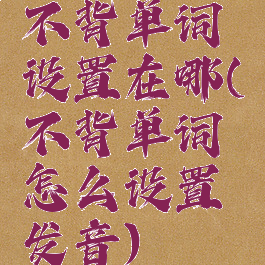 不背单词
设置在哪(
不背单词
怎么设置
发音)